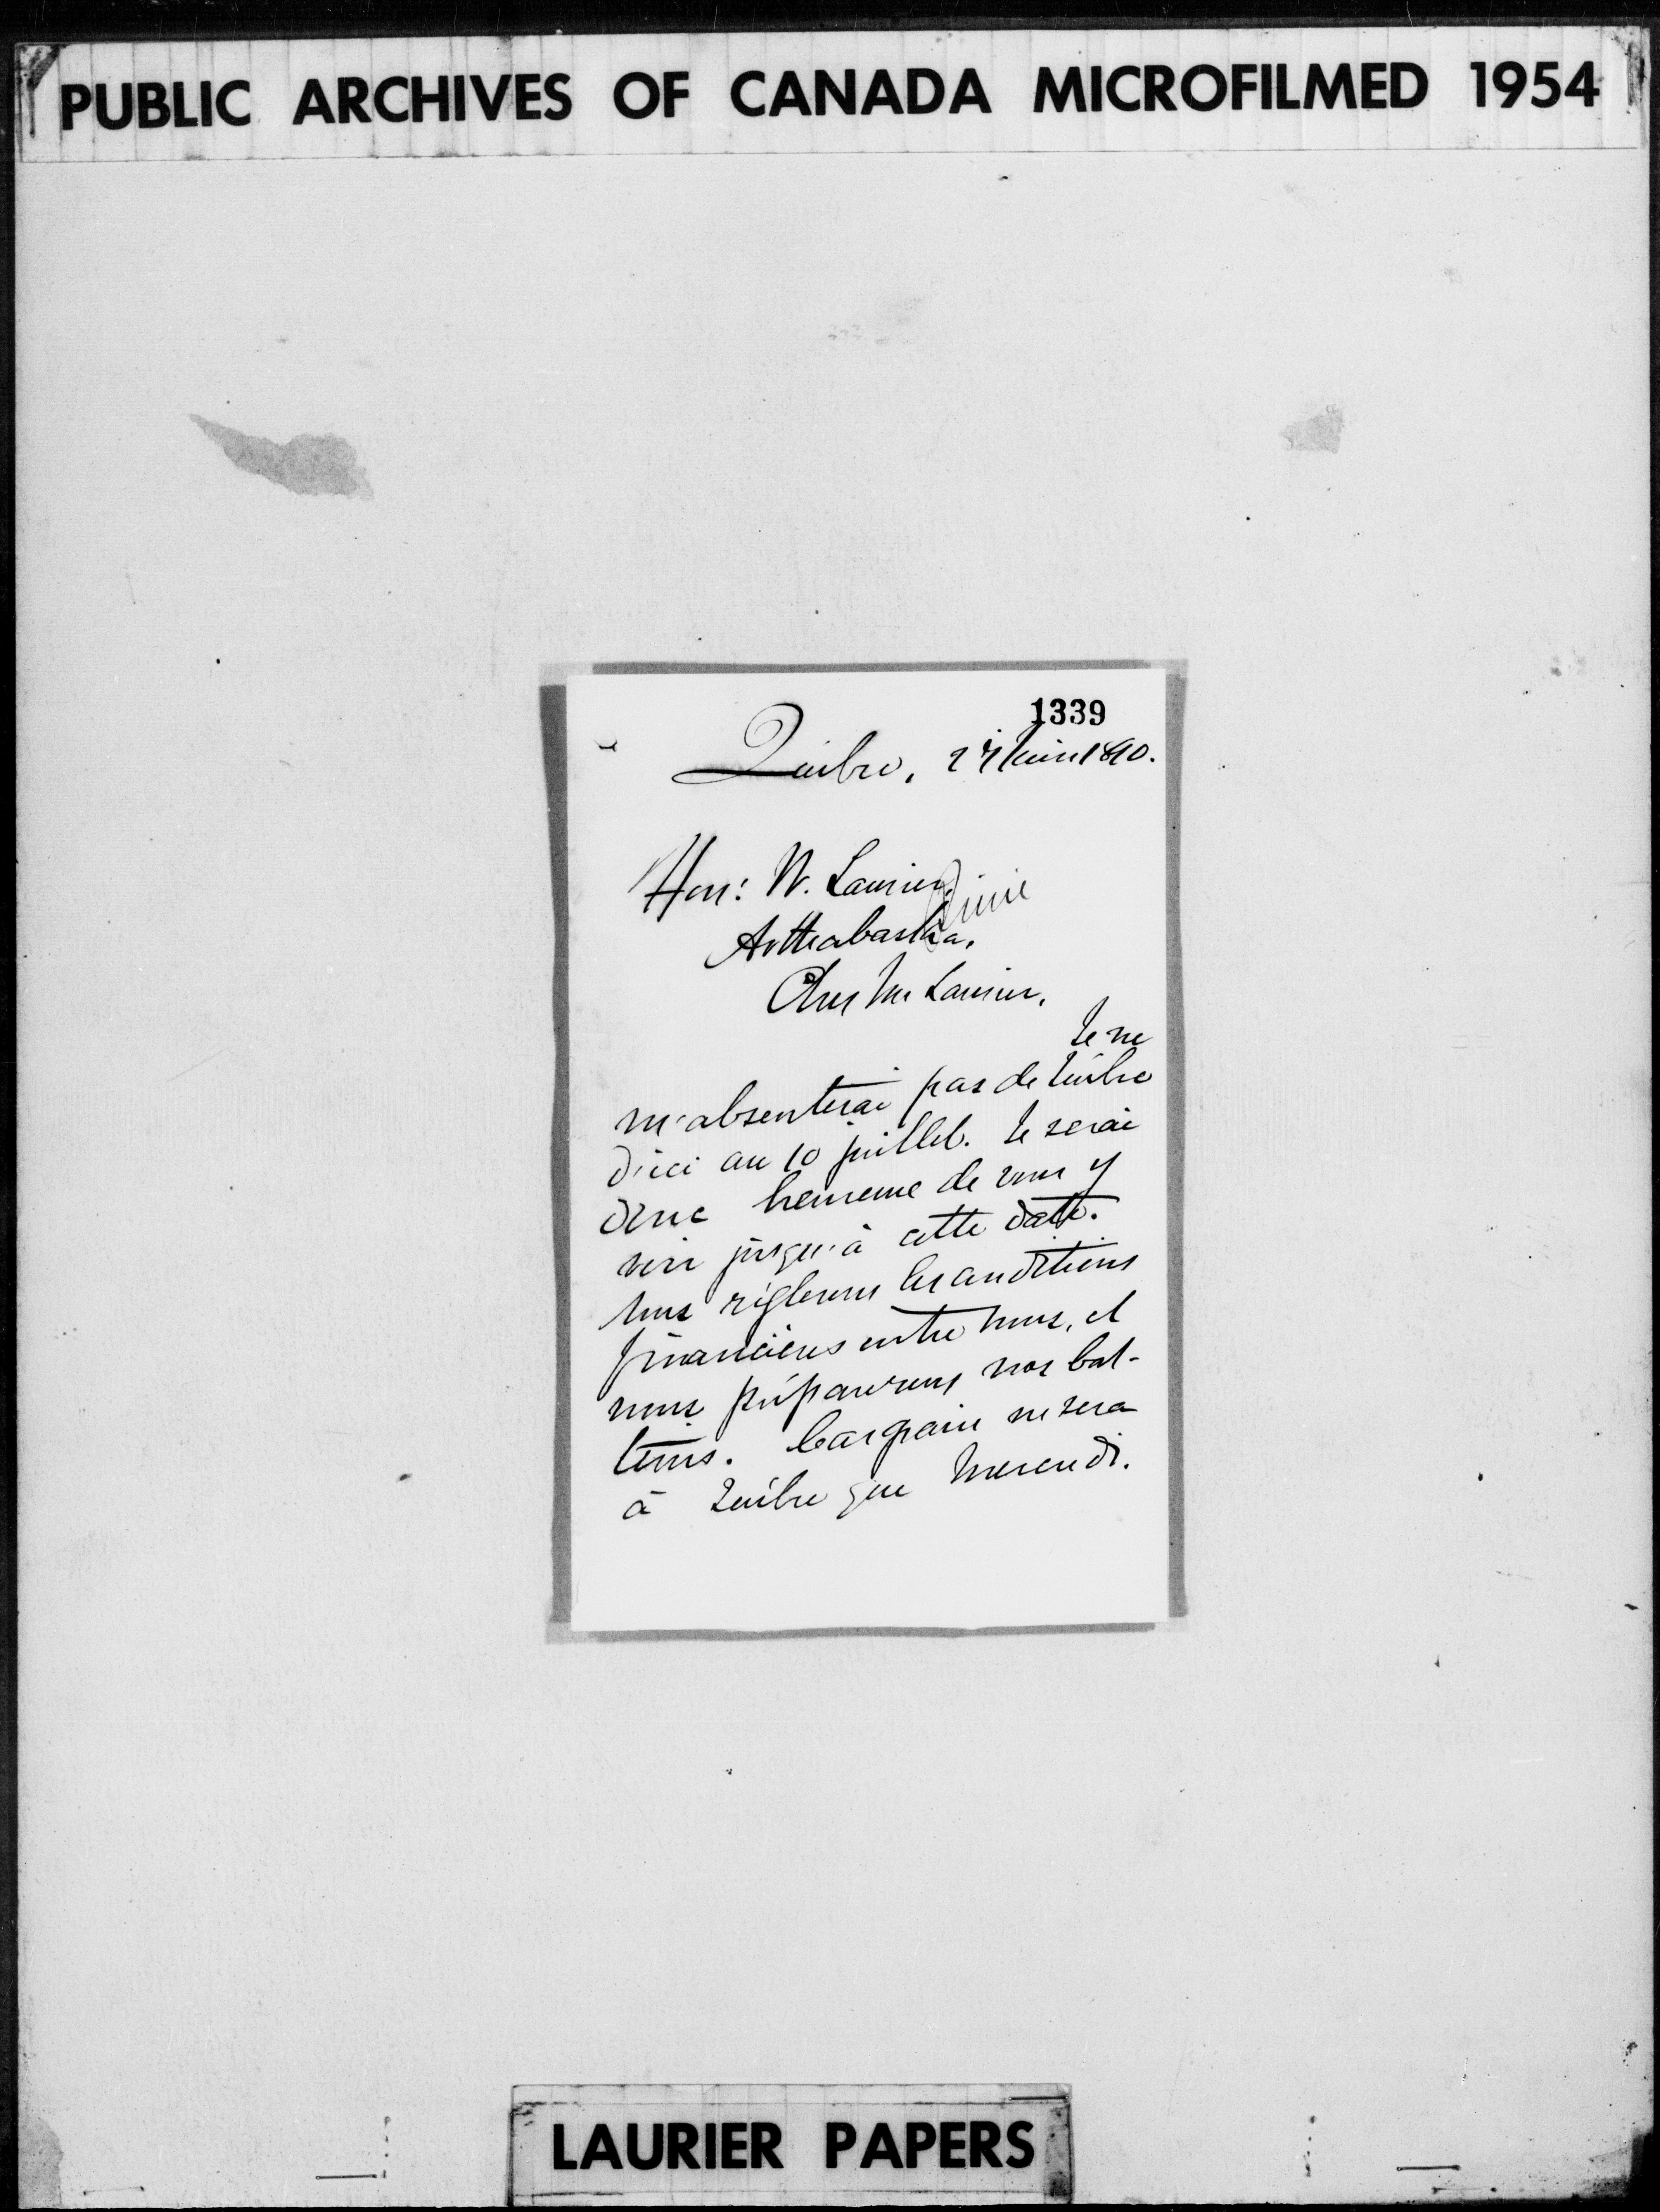 PUBLIC ARCHIVES OF CANADA MICROFILMED 1954
1339
Québec, 27 Juin 1890.
Hon: W. Laurier
Arthabaska,
Cher Mr Laurier,
Je ne
m'absenterai pas de Québec
d'ici au 10 juillet. Je serai
donc heureux de vous y
voir jusqu'à cette date.
Nous règlerons les conditions
financières entre nous, et
nous préparerons nos bat-
teries. Pacaud ne sera
à Québec que Mercredi.
LAURIER PAPERS